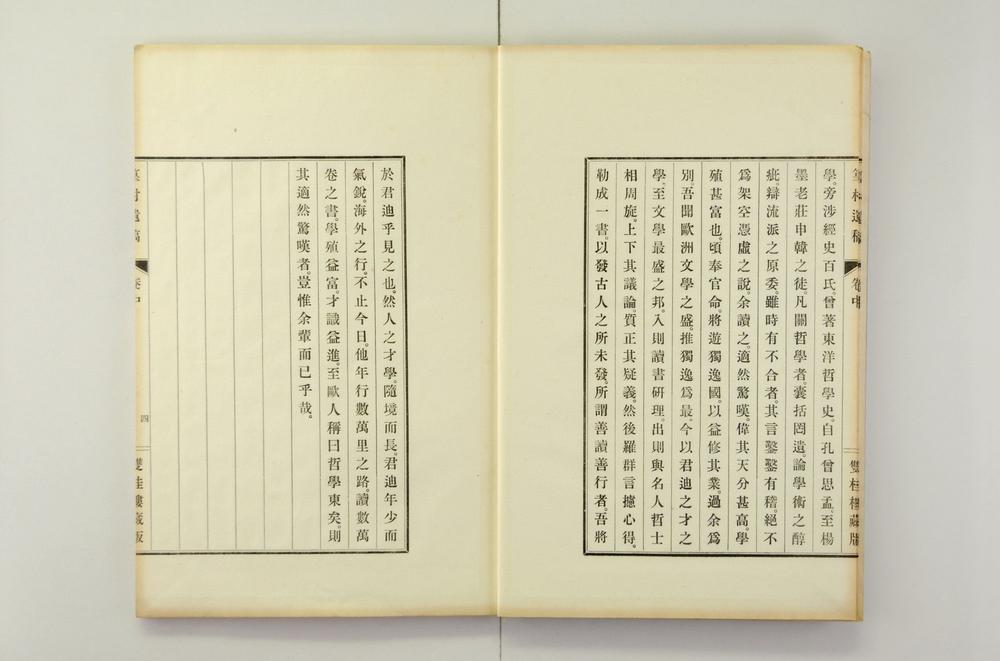 學。旁涉經史百氏。曾著東洋哲學史。自孔曾思孟。至楊
墨老莊申韓之徒。凡關哲學者。囊括罔遺。論學術之醇
疵。辯流派之原委。雖時有不合者。其言鑿鑿有稽。絕不
爲架空憑虛之說。余讀之。適然驚嘆。偉其天分甚高。學
殖甚富也。頃奉官命。將遊獨逸國。以益修其業。過余爲
別。吾聞歐洲文學之盛。推獨逸爲最。今以君迪之才之
學。至文學最盛之邦。入則讀書研理。出則與名人哲士
相周旋。上下其議論。質正其疑義。然後羅群言摅心得。
勒成一書。以發古人之所未發。所謂善讀善行者。吾將
於君迪乎見之也。然人之才學。隨境而長。君迪年少而
氣銳。海外之行。不止今日。他年行數萬里之路。讀數萬
卷之書。學殖益富。才識益進。至歐人稱曰哲學東矣。則
其適然驚嘆者。豈惟余輩而已乎哉。
村遺稿
卷中
四
雙桂樓藏版